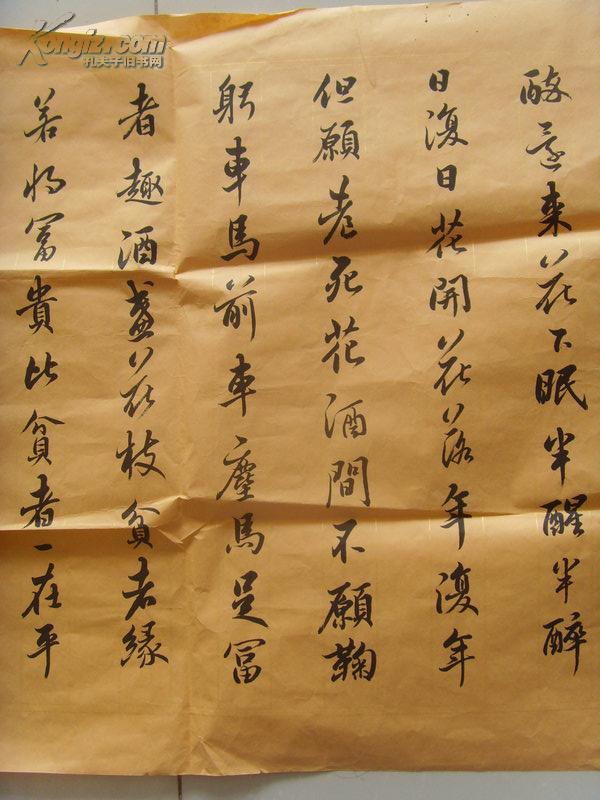 醉還來花下眠半醒半醉
日復日花開花落年復年
但願老死花酒間不願鞠
躬車馬前車塵馬足富
者趣酒盞花枝貧者緣
若将富貴比貧者一在平
Kongfz.com
孔夫子旧书网